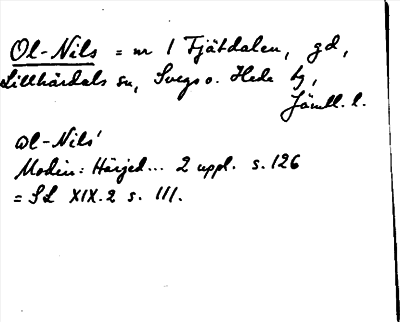 Ol-Nils = nr 1 Fjätdalen, gd,
Lillhärdals sn, Svegs o. Hede tg,
Jämtl. l.
Ol-Nils'
Modin: Härjed... 2 uppl. s. 126
= SL XIX.2 s. 111.